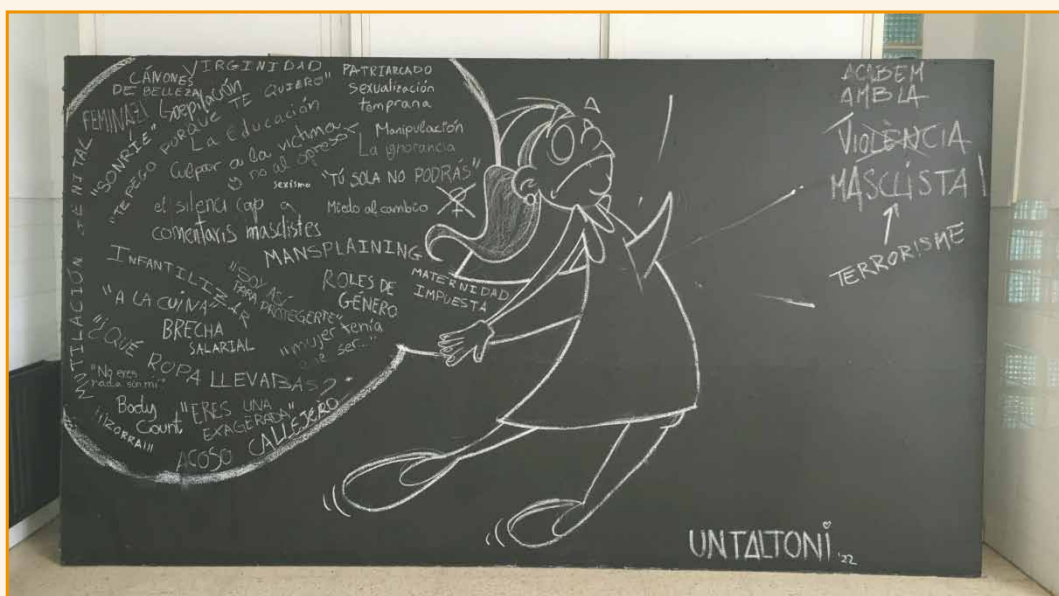 VIRGINIDAD
CÁNONES
DE BELLEZA
PATRIARCADO
Sexualización
temprana
FEMINAZI
"SONRÍE"
"TE PEGO PORQUE TE QUIERO"
La educación
Culpar a la víctima
y no al opresor
Manipulación
La ignorancia
sexismo
"TÚ SOLA NO PODRÁS"
el silenci cap a
comentaris masclistes
Miedo al cambio
MANSPLAINING
MATERNIDAD
IMPUESTA
INFANTILIZAR
"SOY ASÍ
PARA PROTEGERTE"
ROLES DE
GÉNERO
"A LA CUINA"
BRECHA
SALARIAL
"mujer tenía
que ser..."
"¿QUÉ ROPA LLEVABAS?"
"No eres
nada sin mi"
Body
Count
"ERES UNA
EXAGERADA"
¡¡¡ZORRA!!!
ACOSO CALLEJERO
MUTILACIÓN GENITAL
ACABEM
AMB LA
VIOLÈNCIA
MASCLISTA!
TERRORISME
UNTALTONI '22